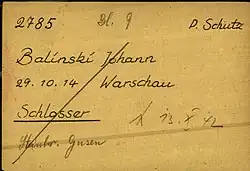 2785 Bl. 9 P. Schutz
Balinski Johann
29.10.14 Warschau
Schlosser
13. X 42
Gusen